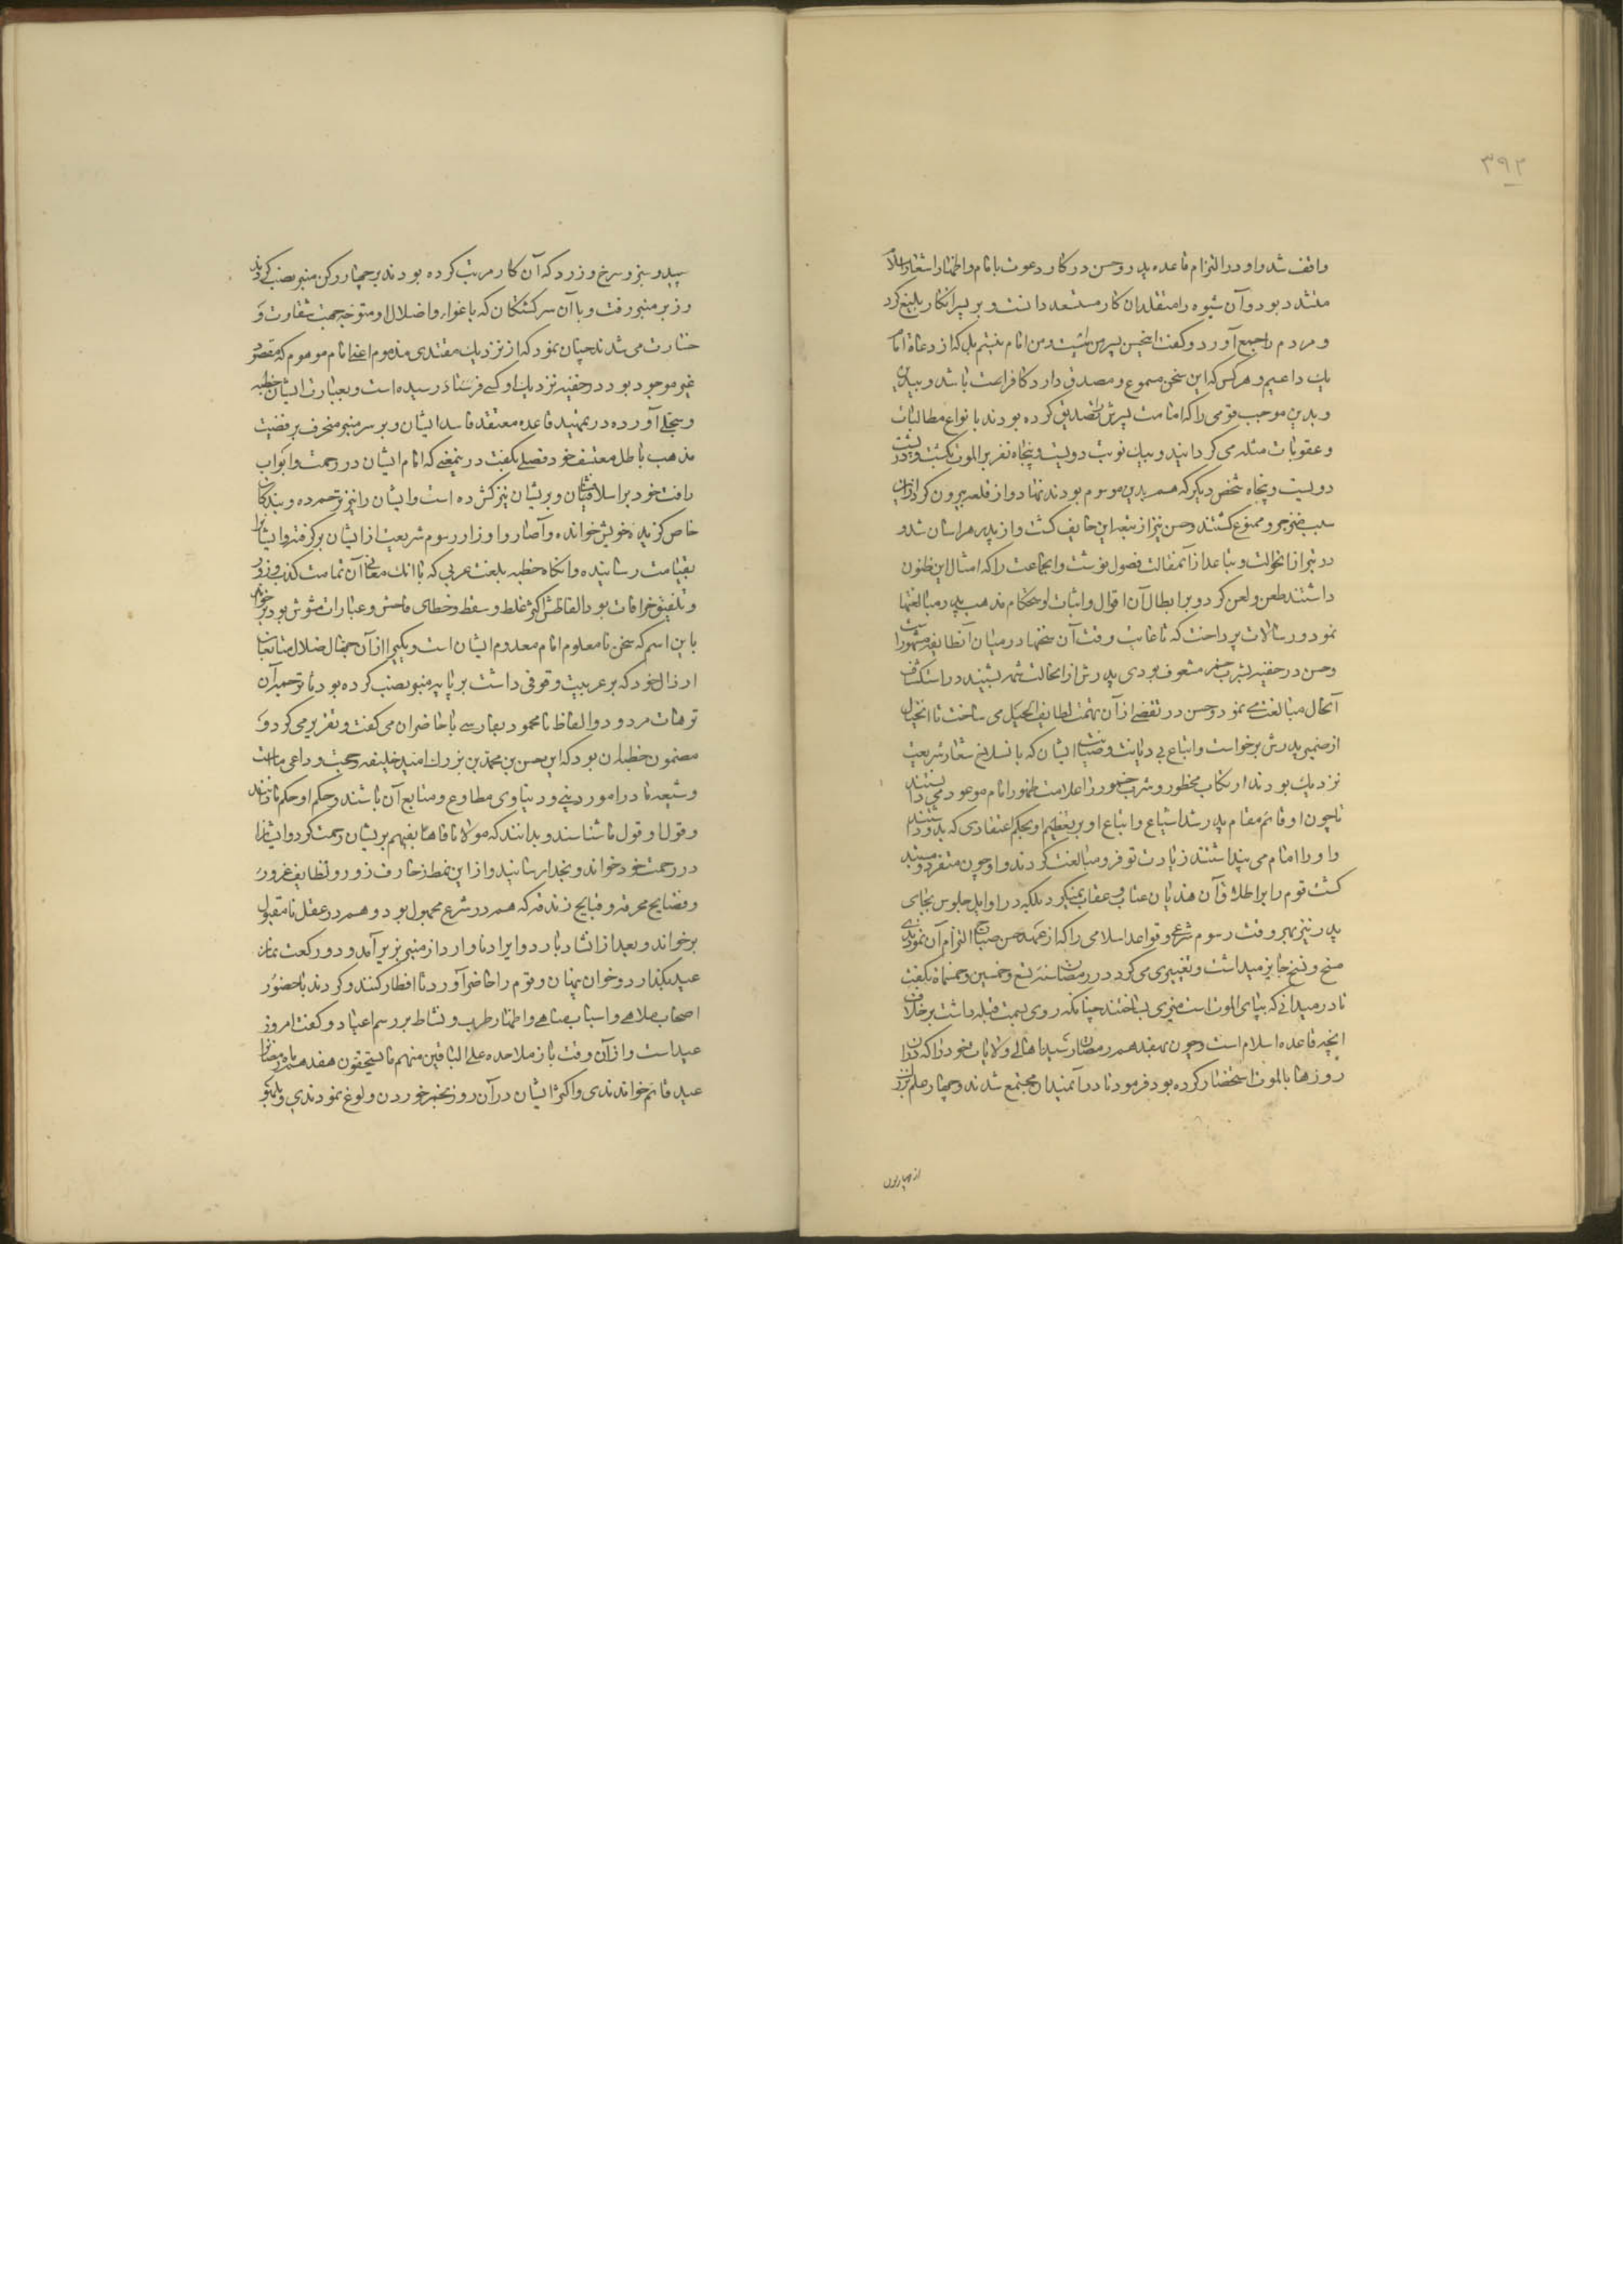 ۳۹۲
واقف شد و او در التزام قاعده پدر و حسن در کار دعوت با امام و اظهار شعار اسلام
متشدد بود و آن شیوه را متقلدان کار مستبعد دانست و بر پسر انکار بلیغ کرد
و مردم را جمع آورد و گفت این حسن پسر من است و من امام نیستم بل که از دعاة امام
یک داعیم و هر کس که این سخن مسموع و مصدق دارد کافر باشد و بیدین
و بدین موجب قومی را که امامت پسرش را تصدیق کرده بودند با نواع مطالبات
و عقوبات مثله می گردانید و بیک نوبت دویست و پنجاه نفر بر الموت بکشت و بر پشت
دویست و پنجاه شخص دیگر که هم بدین موسوم بودند نهاد و از قلعه بیرون کرد ازین
سبب منزجر و ممنوع گشتند و حسن نیز از تبعه این خایف گشت و از پدر هراسان شد و
در تبرا از انحوالت و تباعد از آن مقالت فصول نوشت و انجماعت را که امثال این ظنون
داشتند طعن و لعن کرد و بر ابطال آن اقوال و اثبات و احکام مذهب پدر مبالغتها
نمود و رسالات پرداخت که تا غایت وقت آن سخنها در میان آن طایفه مشهور است
و حسن در خفیه بشرب خمر مشعوف بودی پدرش از انحالت شمه بشنید در استکشاف
آنحال مبالغت می نمود و حسن در تقصی از آن تهمت لطایف الحیل می ساخت تا انخیال
از ضمیر پدرش برخواست و اتباع بی دیانت و صیانت ایشان که با نسلاخ شعار شریعت
نزدیک بودند ارتکاب محظور و شرب خمور را علامت ظهور امام موعود می دانستند
تا چون او قائم مقام پدر شد اشیاع و اتباع او بر تعظیم او بحکم اعتقادی که بدو داشتند
و او را امام می پنداشتند زیادت توفر و مبالغت کردند و او چون متفرد و مستبد
گشت قوم را بر اطلاق آن هذیان عتاب و عقاب نمیکرد بلکه در اوایل جلوس بجای
پدر نیز بهر وقت رسوم شرعی و قواعد اسلامی را که از عهد حسن صباح التزام آن نموده بودند
مسخ و نسخ جایز میداشت و تغییری می کرد در رمضان سنه تسع و خمسین و خمسمائه بگفت
تا در میدانی که بپای الموت است منبری بساختند چنانکه روی بسمت قبله داشت بر خلاف
انچه قاعده اسلام است و چون هفدهم رمضان رسید اهالی ولایات خود را که در آن
روزها بالموت استحضار کرده بود فرمود تا در آن میدان مجتمع شدند و چهار علم بزرگ
از چهار لون
سپید و سبز و سرخ و زرد که آن کار مرتب کرده بودند بر چهار رکن منبر نصب کردند
و زبر منبر رفت و با آن سرگشتگان که باغواء و اضلال او متوجه جهت شقاوت و
خسارت می شدند چنان نمود که از نزدیک مقتدی مذموم اعنی امام موهوم که مفقود
غیر موجود بود در خفیه نزدیک او کسی فرستاده رسیده است و بعبارت ایشان خطبه
و سجلی آورده در تمهید قاعده معتقد فاسد ایشان و بر سر منبر منحرف بر قضیت
مذهب باطل معتسف خود فصلی بگفت در ینمعنی که امام ایشان در رحمت و ابواب
رأفت خود بر اسلامیان و بریشان نیز گشوده است و ایشان را نیز ترحم داده و بندکان
خاص گزیده خویش خوانده و آصار و اوزار رسوم شریعت از ایشان برگرفته و ایشانرا
بقیامت رسانیده و انگاه خطبه بلغت عربی که با انک معانی آن تمامت کذب و زور
و تلفیق خرافات بود الفاظش اکثر غلط و سقط و خطای فاحش و عبارات مشوش بود برخواند
باین اسم که سخن نامعلوم امام معدوم ایشان است و یکی را از آن جهال ضلال متابعان
ارذال خود که بر عربیت وقوفی داشت بر پایه منبر نصب کرده بود تا ترجمه آن
ترهات مردود و الفاظ نامحمود بپارسی با حاضران می گفت و تقریر می کرد و
مضمون خطبه آن بود که این حسن بن محمد بن بزرك امید خلیفه و حجت و داعی ماست
و شیعه ما در امور دینی و دنیاوی مطاوع و متابع آن باشند و حکم او حکم ما دانند
و قول او قول ما شناسند و بدانند که مولانا فاهمنا بفهم بریشان رحمت کرد و ایشانرا
در رحمت خود خواند و بخدا رسانید و از این نمط زخارف زور و لطایف غرور
و فضایح مخرقه و قبایح زندقه که هم در شرع مجهول بود و هم در عقل نامقبول
برخواند و بعد از انشاد بارد و ایراد ناوارد از منبر بزیر آمد و دو رکعت نماز
عید بگذارد و خوان بنهاد و قوم را حاضر آورد تا افطار کنند و کردند با حضور
اصحاب ملاهی و اسباب مناهی و اظهار طرب و نشاط بر رسم اعیاد و گفت امروز
عید است و از آن وقت باز ملاحده علی الباقین منهم ما یستحقون هفدهم ماه رمضانرا
عید قائم خواندندی و اکثر ایشان در آن روز بخمر خوردن ولوغ نمودندی و بلهو